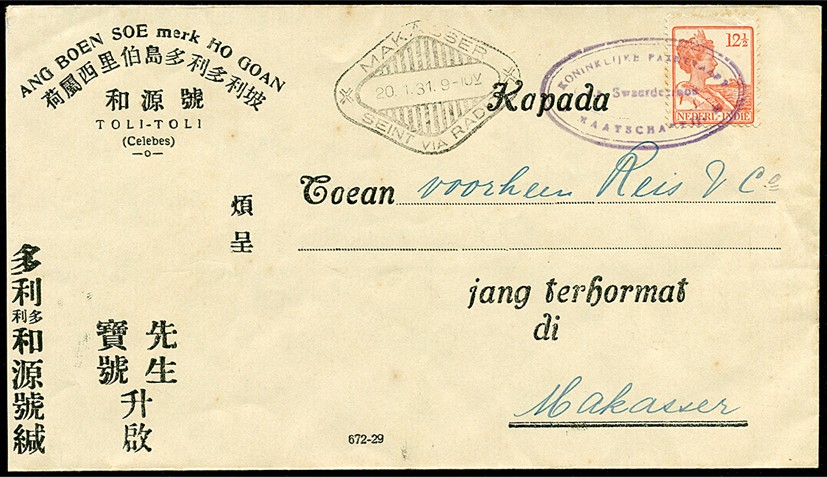 ANG BOEN SOE merk HO GOAN
荷屬西里伯島多利多利坡
和源號
TOLI-TOLI
(Celebes)
MAKASSER
20.1.31.9-10V
SEINT VIA RADIO
KONINKLIJKE PAKETVAART
Swaerdecroon
MAATSCHAPPIJ
12½
NEDERL-INDIE
Kapada
Toean voorheen Reis & Co
jang terhormat
di
Makasser
煩呈
先生
寶號
升啟
多利多利和源號緘
672-29